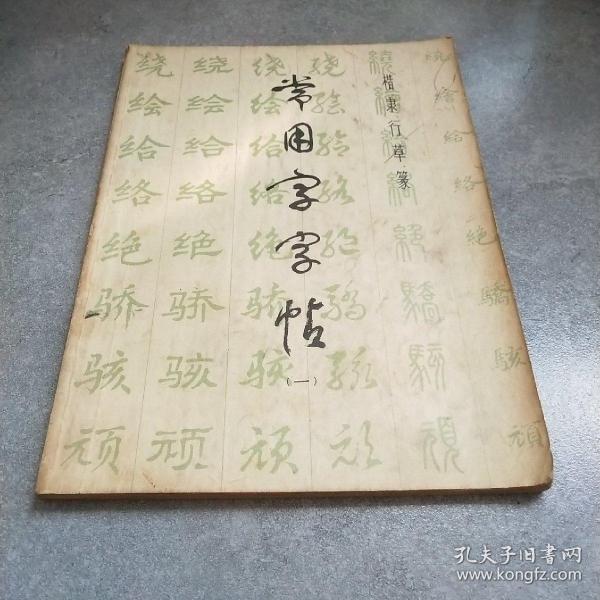 常用字字帖
（一）
楷隶行草篆
绕 绕 绕 绕 繞 绕
绘 绘 绘 绘 繪 繪
给 给 给 给 給 给
络 络 络 络 絡 絡
绝 绝 绝 绝 絕 絶
骄 骄 骄 骄 驕 驕
骇 骇 骇 骇 駭 骇
顽 顽 顽 顽 頑 頑
孔夫子旧书网
www.kongfz.com